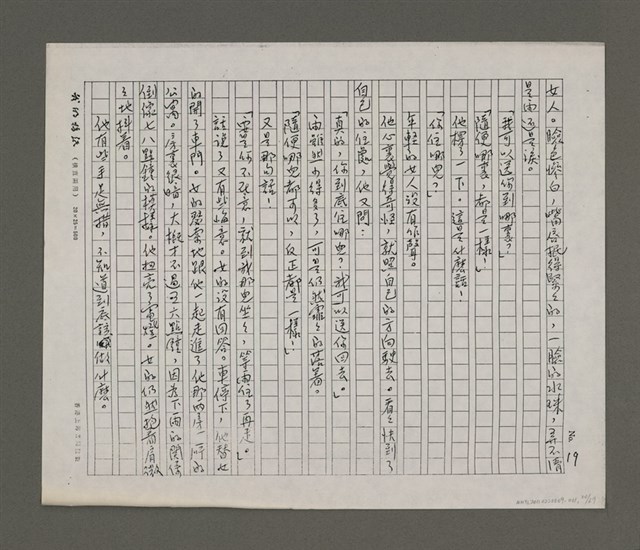 19
女人。臉色慘白，嘴唇抿得緊緊的，一臉的水珠，弄不清
是雨還是淚。
「我可以送你到哪裏？」
「隨便哪裏，都是一樣！」
他擇了一下。這是什麼話！
「你住哪兒？」
年輕的女人沒有作聲。
他心裏覺得奇怪，就照自己的方向駛去。看看快到了
自己的住處，他又問：
「真的，你到底住哪兒？我可以送你回去。」
雨雖然小得多了，可是仍然霏霏的落著。
「隨便哪兒都可以，反正都是一樣！」
又是那句話！
「要是你不在意，就到我那兒坐坐，等雨住了再走。」
話說了又有些悔意。女的沒有回答。車停下，他替她
的開了車門。女的默默地跟他一起走進了他那兩房一所的
公寓。房裏很暗，大概才不過五六點鐘，因為下雨的關係
倒像七八點鐘的模樣。他扭亮了電燈。女的仍然抱著肩微
微地抖著。
他有些手足無措，不知道到底該做什麼。
25×20=500